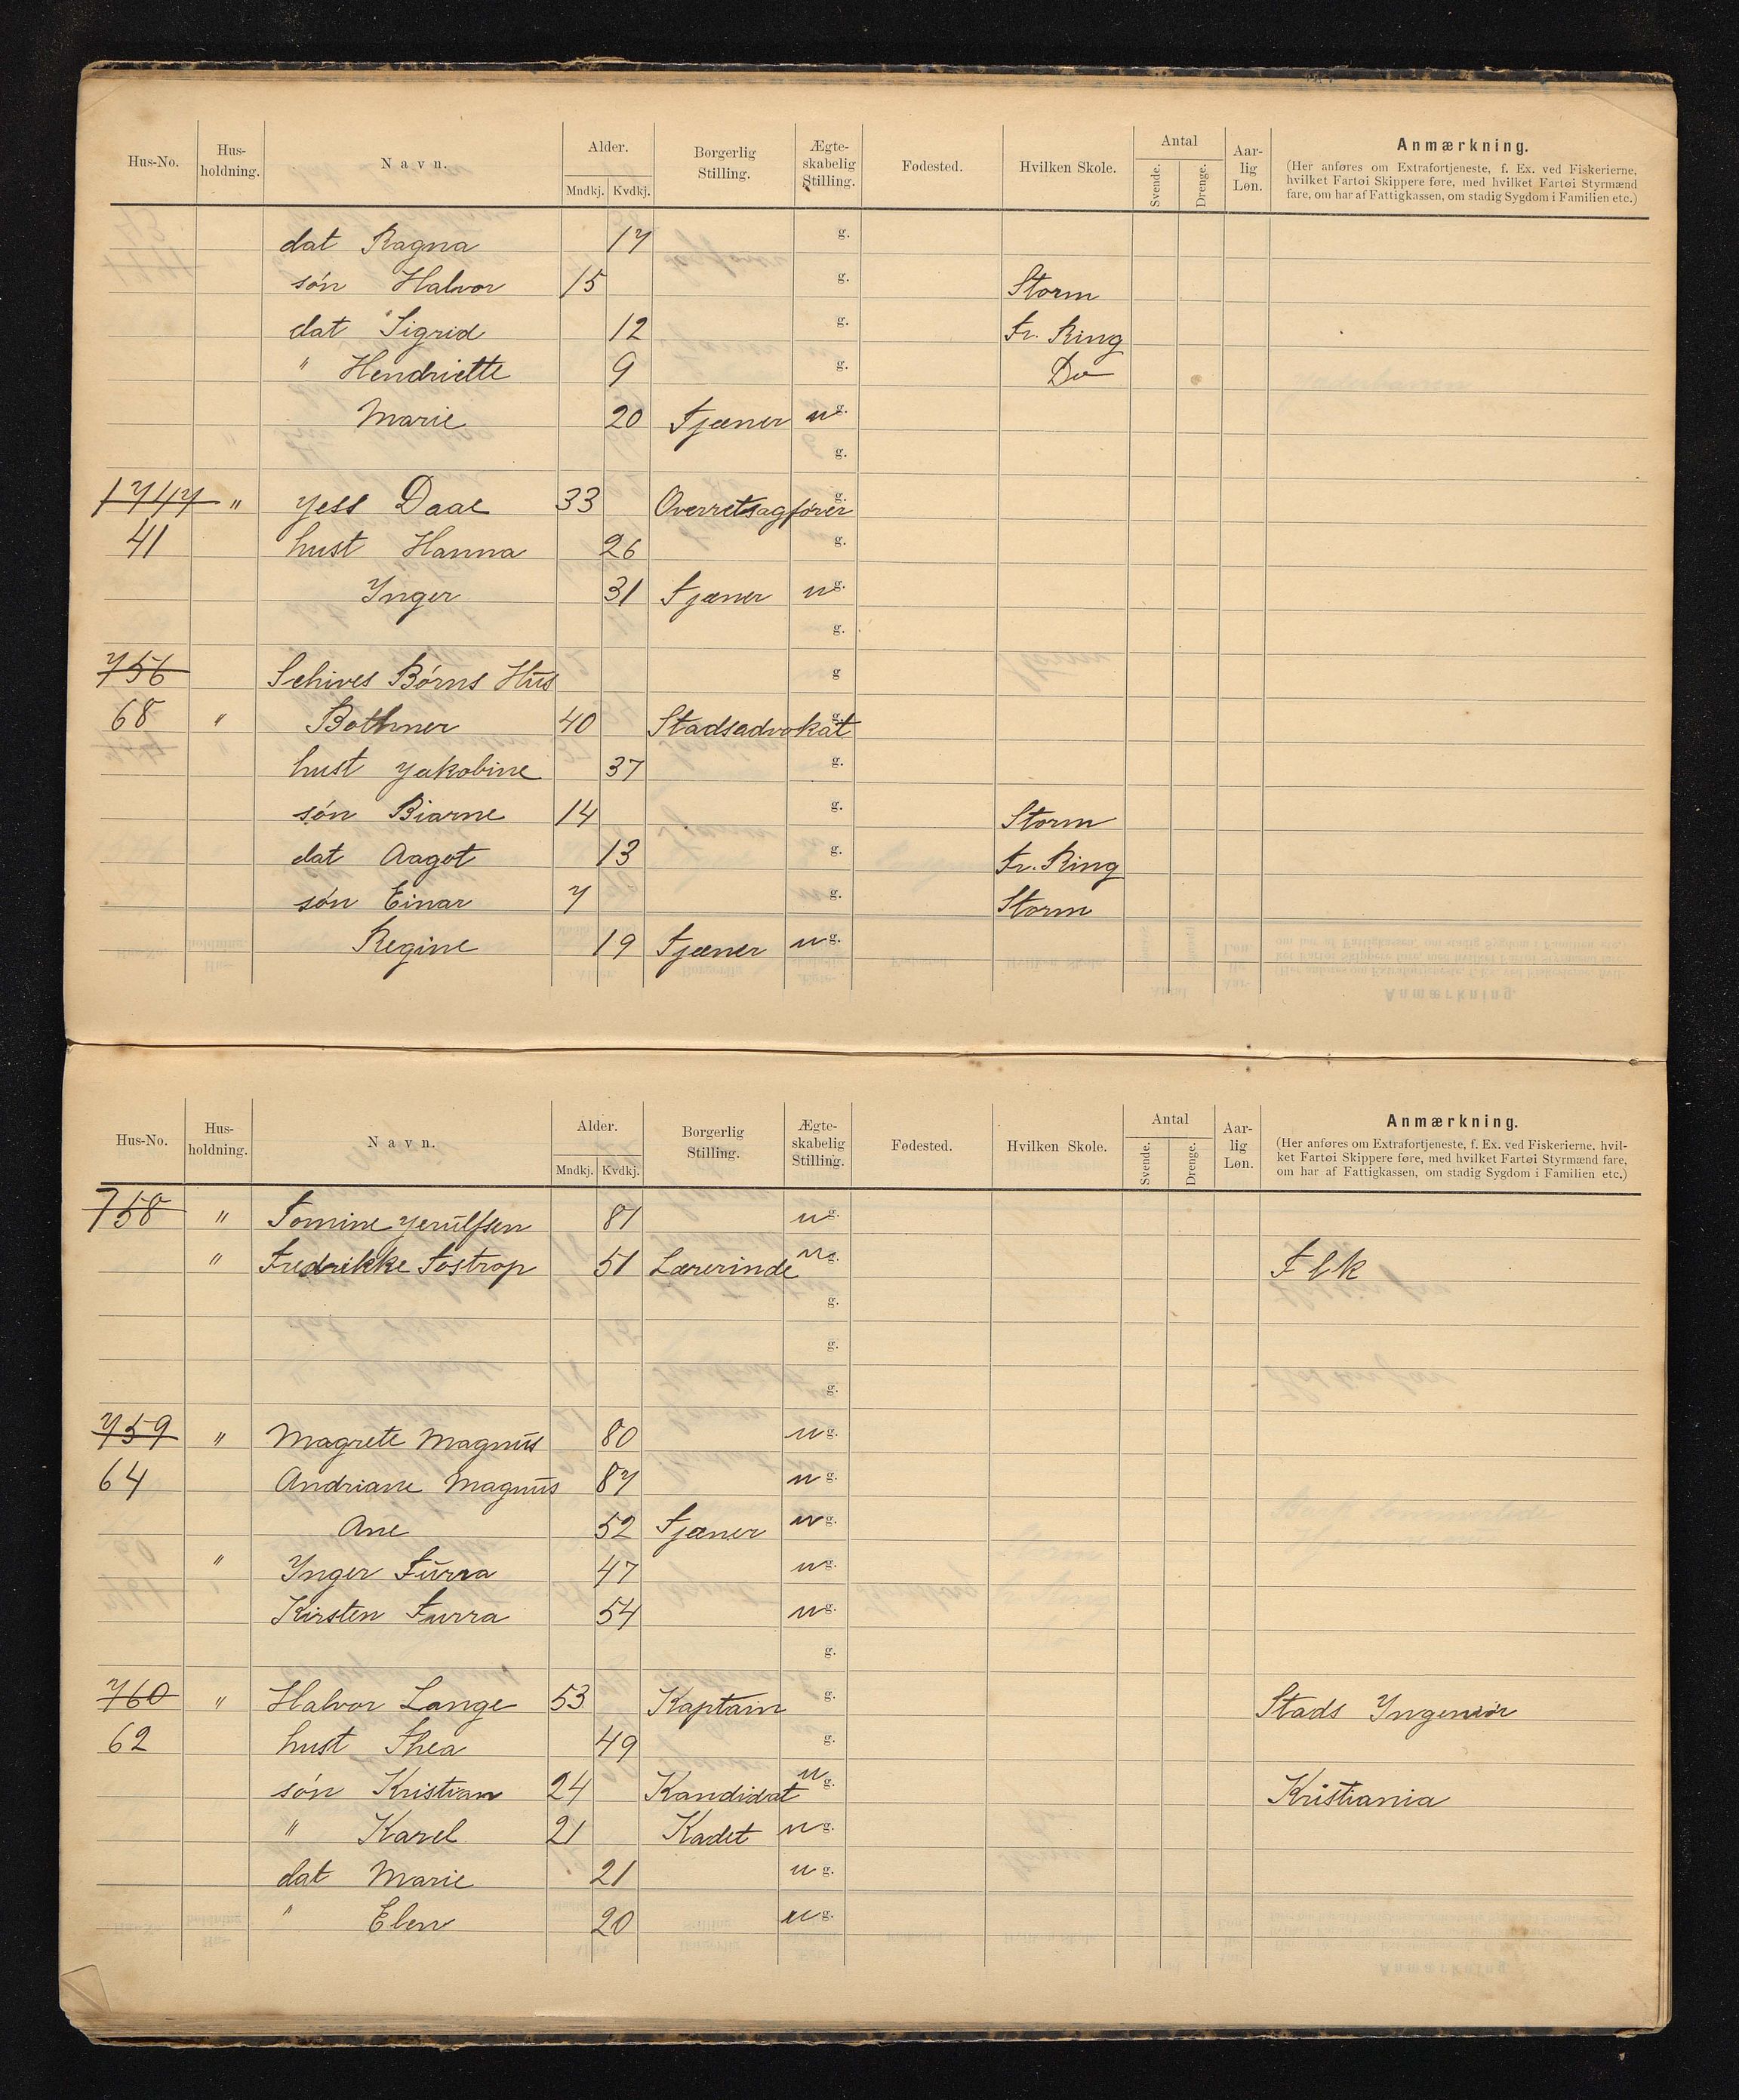 Hus-No. Hus-holdning. Navn. Alder. Mndkj. Kvdkj. Borgerlig Stilling. Ægte-skabelig Stilling. Fødested. Hvilken Skole. Antal Svende. Drenge. Aar-lig Løn. Anmærkning.
(Her anføres om Extrafortjeneste, f. Ex. ved Fiskerierne,
hvilket Fartøi Skippere føre, med hvilket Fartøi Styrmænd
fare, om har af Fattigkassen, om stadig Sygdom i Familien etc.)
dat Ragna 17 g.
søn Halvor 15 g. Storm
dat Sigrid 12 g. Fr. Ring
" Hendriette 9 g. Do
Marie 20 Tjæner u g.
g.
1747 " Jess Daae 33 Overretsagfører g.
41 hust Hanna 26 g.
Inger 31 Tjæner u g.
g.
756 Schives Børns Hus g
68 " Bothner 40 Stadsadvokat g.
hust Jakobine 37 g.
søn Biarne 14 g. Storm
dat Aagot 13 g. Fr. Ring
søn Einar 7 g. Storm
Regine 19 Tjæner u g.
Hus-No. Hus-holdning. Navn. Alder. Mndkj. Kvdkj. Borgerlig Stilling. Ægte-skabelig Stilling. Fødested. Hvilken Skole. Antal Svende. Drenge. Aar-lig Løn. Anmærkning.
(Her anføres om Extrafortjeneste, f. Ex. ved Fiskerierne, hvil-
ket Fartøi Skippere føre, med hvilket Fartøi Styrmænd fare,
om har af Fattigkassen, om stadig Sygdom i Familien etc.)
758 " Tomine Jerulfsen 81 u g.
" Fredrikke Tostrop 51 Lærerinde u g. F l k
g.
g.
g.
759 " Magrete Magnus 80 u g.
64 Andriane Magnus 87 u g.
Ane 52 Tjæner u g.
" Inger Furra 47 u g.
Kirsten Furra 54 u g.
g.
760 " Halvor Lange 53 Kaptain g. Stads Ingeniör
62 hust Thea 49 g.
søn Kristian 24 Kandidat u g. Kristiania
" Karel 21 Kadet u g.
dat Marie 21 u g.
" Elen 20 u g.